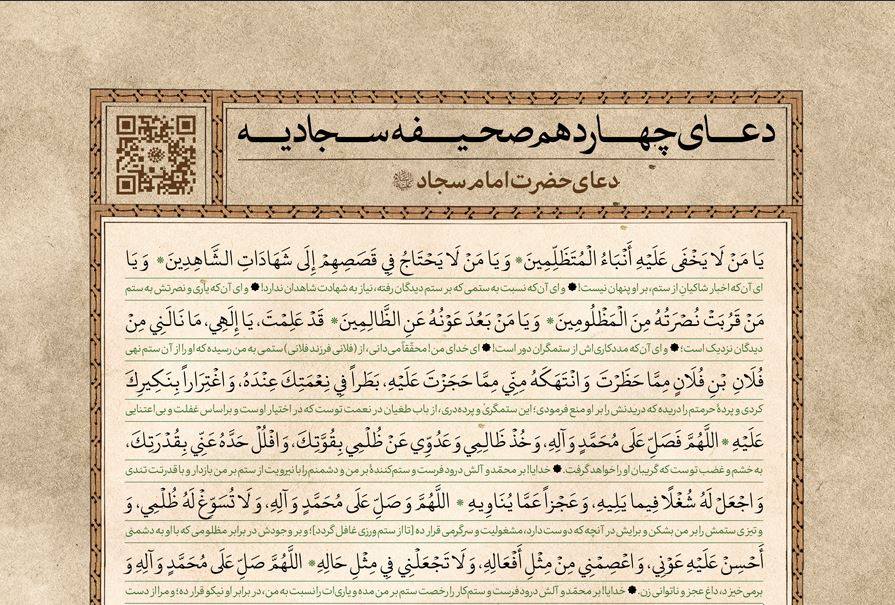 دعـــای چهـــاردهم صحـیـــفه ســـجادیـــه
دعای حضرت امام سجاد
یَا مَنْ لَا یَخْفَی عَلَیْهِ أَنْبَاءُ الْمُتَظَلِّمِینَ * وَ یَا مَنْ لَا یَحْتَاجُ فِی قَصَصِهِمْ إِلَی شَهَادَاتِ الشَّاهِدِینَ * وَ یَا
ای آن‌که اخبار شاکیان از ستم، بر او پنهان نیست! ● و ای آن‌که نسبت به ستمی که بر ستم دیدگان رفته، نیاز به شهادت شاهدان ندارد! ● و ای آن‌که یاری و نصرتش به ستم
مَنْ قَرُبَتْ نُصْرَتُهُ مِنَ الْمَظْلُومِینَ * وَ یَا مَنْ بَعُدَ عَوْنُهُ عَنِ الظَّالِمِینَ * قَدْ عَلِمْتَ، یَا إِلَهِی، مَا نَالَنِی مِنْ
دیدگان نزدیک است؛ ● و ای آن‌که مددکاری‌اش از ستمگران دور است! ● ای خدای من! محقّقاً می‌دانی، از (فلانی فرزند فلانی) ستمی به من رسیده که او را از آن ستم نهی
فُلَانِ بْنِ فُلَانٍ مِمَّا حَظَرْتَ وَ انْتَهَکَهُ مِنِّی مِمَّا حَجَزْتَ عَلَیْهِ، بَطَراً فِی نِعْمَتِكَ عِنْدَهُ، وَ اغْتِرَاراً بِنَکِیرِكَ
کردی و پردهٔ حرمتم را دریده که دریدنش را بر او منع فرمودی؛ این ستمگری و پرده‌دری، از باب طغیان در نعمت توست که در اختیار اوست و براساس غفلت و بی‌اعتنایی
عَلَیْهِ * اللَّهُمَّ فَصَلِّ عَلَی مُحَمَّدٍ وَ آلِهِ، وَ خُذْ ظَالِمِی وَ عَدُوِّی عَنْ ظُلْمِی بِقُوَّتِكَ، وَ افْلُلْ حَدَّهُ عَنِّی بِقُدْرَتِكَ،
به خشم و غضب توست که گریبان او را خواهد گرفت. ● خدایا! بر محمّد و آلش درود فرست و ستم‌کنندهٔ بر من و دشمنم را با نیرویت از ستم بر من بازدار و با قدرتت تندی
وَ اجْعَلْ لَهُ شُغْلًا فِیما یَلِیهِ، وَ عَجْزاً عَمَّا یُنَاوِیهِ * اللَّهُمَّ وَ صَلِّ عَلَی مُحَمَّدٍ وَ آلِهِ، وَ لَا تُسَوِّغْ لَهُ ظُلْمِی، وَ
و تیزی ستمش را بر من بشکن و برایش در آنچه که دوست دارد، مشغولیت و سرگرمی قرار ده [تا از ستم‌ورزی غافل گردد]؛ و بر وجودش در برابر مظلومی که با او به دشمنی
أَحْسِنْ عَلَیْهِ عَوْنِی، وَ اعْصِمْنِی مِنْ مِثْلِ أَفْعَالِهِ، وَ لَا تَجْعَلْنِی فِی مِثْلِ حَالِهِ * اللَّهُمَّ صَلِّ عَلَی مُحَمَّدٍ وَ آلِهِ وَ
برمی‌خیزد، داغ عجز و ناتوانی زن. ● خدایا! بر محمّد و آلش درود فرست و ستم‌کار را رخصت ستم بر من مده و یاری‌ات را نسبت به من، در برابر او نیکو قرار ده؛ و مرا از دست